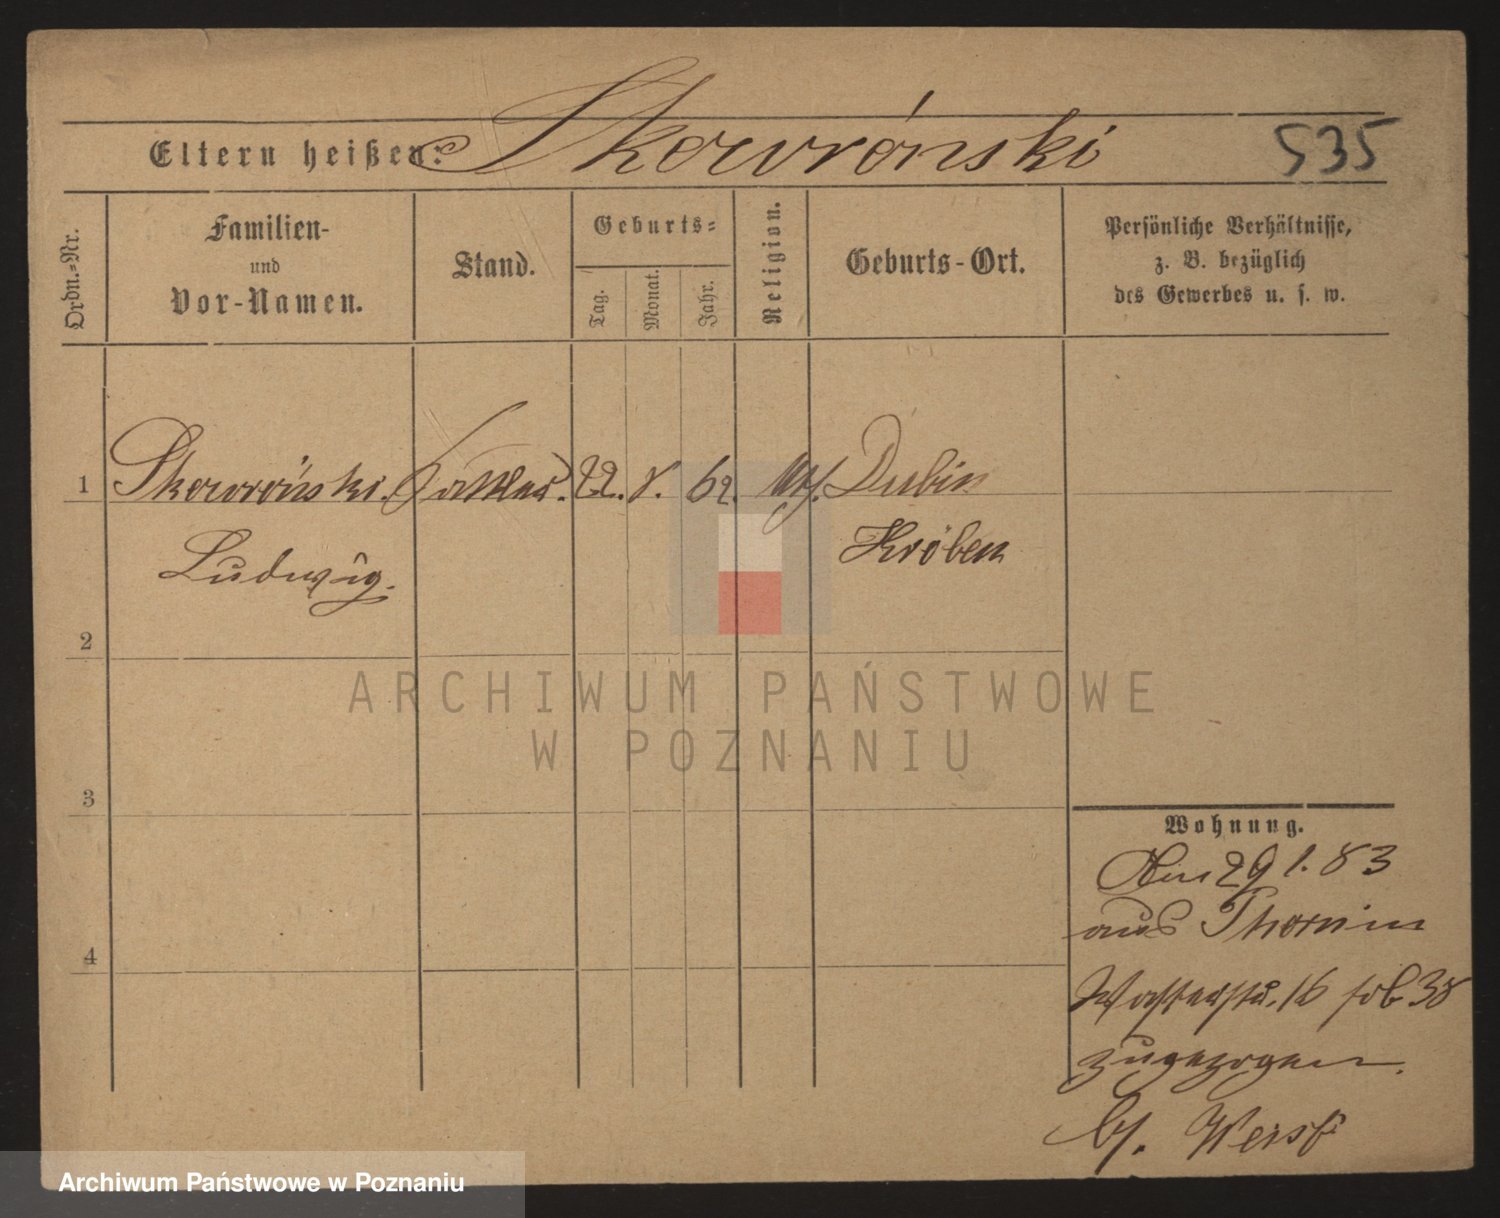 Eltern heißen: Skowroński 535
Ordn.=Nr.
Familien-
und
Vor-Namen.
Stand.
Geburts=
Tag.
Monat.
Jahr.
Religion.
Geburts-Ort.
Persönliche Verhältnisse,
z. B. bezüglich
des Gewerbes u. s. w.
1 Skowroński. Sattler. 22. 8. 62. Dubin
Ludwig. Kröben
2
3
4
Wohnung.
29 1. 83
aus
Wasserstr. 16
zugezogen.
ARCHIWUM PAŃSTWOWE
W POZNANIU
Archiwum Państwowe w Poznaniu